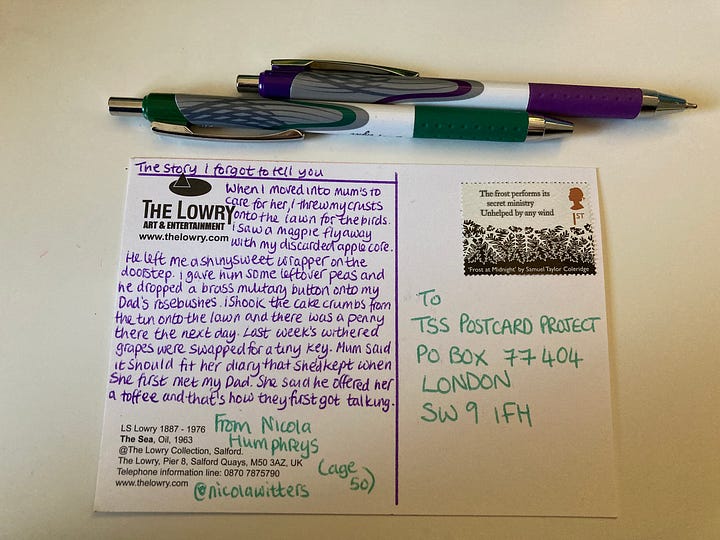 The story I forgot to tell you
THE LOWRY
ART & ENTERTAINMENT
www.thelowry.com
When I moved into Mum's to
care for her, I threw my crusts
onto the lawn for the birds.
I saw a magpie fly away
with my discarded apple core.
He left me a shiny sweet wrapper on the
doorstep. I gave him some leftover peas and
he dropped a brass military button onto my
Dad's rosebushes. I shook the cake crumbs from
the tin onto the lawn and there was a penny
there the next day. Last week's withered
grapes were swapped for a tiny key. Mum said
it should fit her diary that she'd kept when
she first met my Dad. She said he offered her
a toffee and that's how they first got talking.
LS Lowry 1887 - 1976
The Sea, Oil, 1963
@The Lowry Collection, Salford.
The Lowry, Pier 8, Salford Quays, M50 3AZ, UK
Telephone information line: 0870 7875790
www.thelowry.com
From Nicola
Humphreys
(age
50)
@nicolawitters
The frost performs its
secret ministry
Unhelped by any wind
1ST
'Frost at Midnight' by Samuel Taylor Coleridge
To
TSS POSTCARD PROJECT
PO BOX 77404
LONDON
SW9 1FH